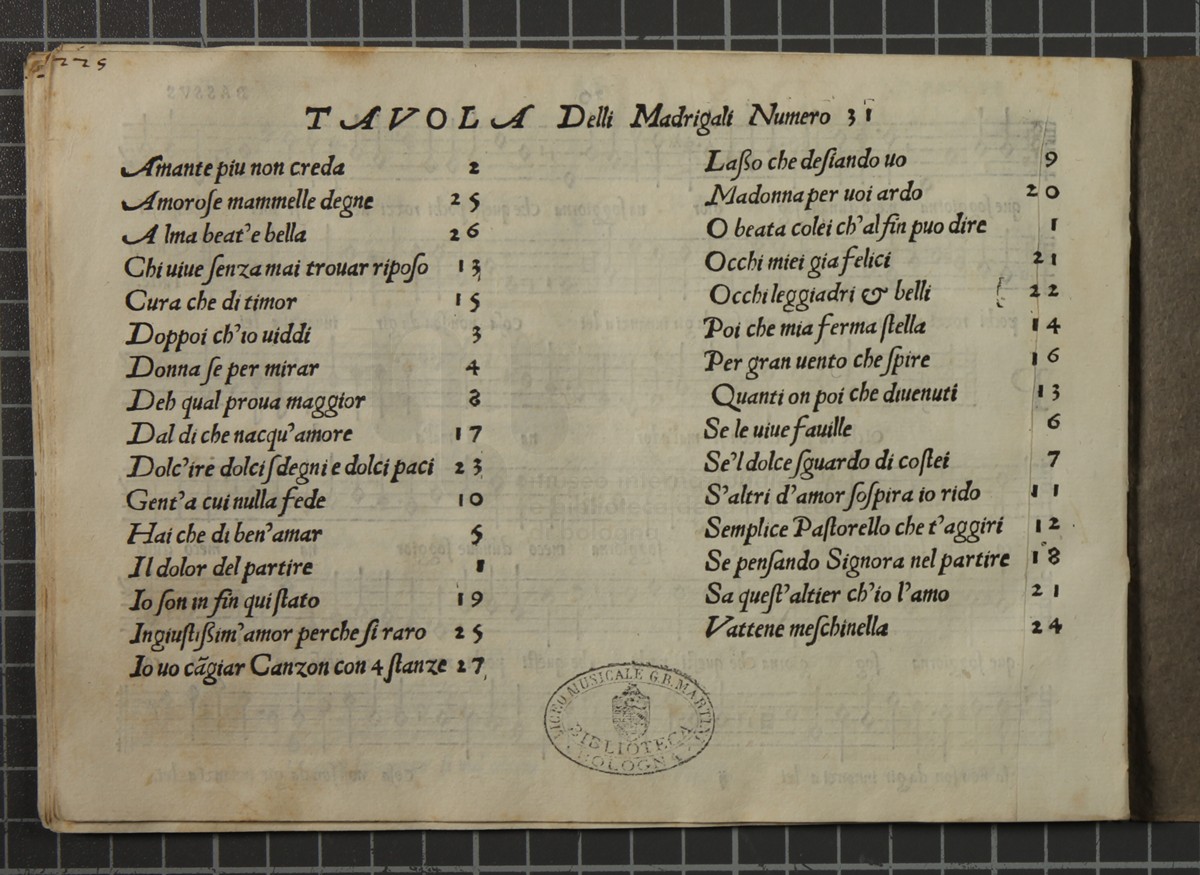 225
TAVOLA Delli Madrigali Numero 31
Amante piu non creda 2
Amorose mammelle degne 25
Alma beat'e bella 26
Chi uiue senza mai trouar riposo 13
Cura che di timor 15
Doppoi ch'io uiddi 3
Donna se per mirar 4
Deh qual proua maggior 8
Dal di che nacqu'amore 17
Dolc'ire dolci sdegni e dolci paci 23
Gent'a cui nulla fede 10
Hai che di ben'amar 5
Il dolor del partire 1
Io son in fin qui stato 19
Ingiustissim'amor perche si raro 25
Io uo cãgiar Canzon con 4 stanze 27
Lasso che desiando uo 9
Madonna per uoi ardo 20
O beata colei ch'al fin puo dire 1
Occhi miei gia felici 21
Occhi leggiadri & belli 22
Poi che mia ferma stella 14
Per gran uento che spire 16
Quanti on poi che diuenuti 13
Se le uiue fauille 6
Se'l dolce sguardo di costei 7
S'altri d'amor sospira io rido 11
Semplice Pastorello che t'aggiri 12
Se pensando Signora nel partire 18
Sa quest'altier ch'io l'amo 21
Vattene meschinella 24
LICEO MUSICALE G.B. MARTINI
BIBLIOTECA
BOLOGNA